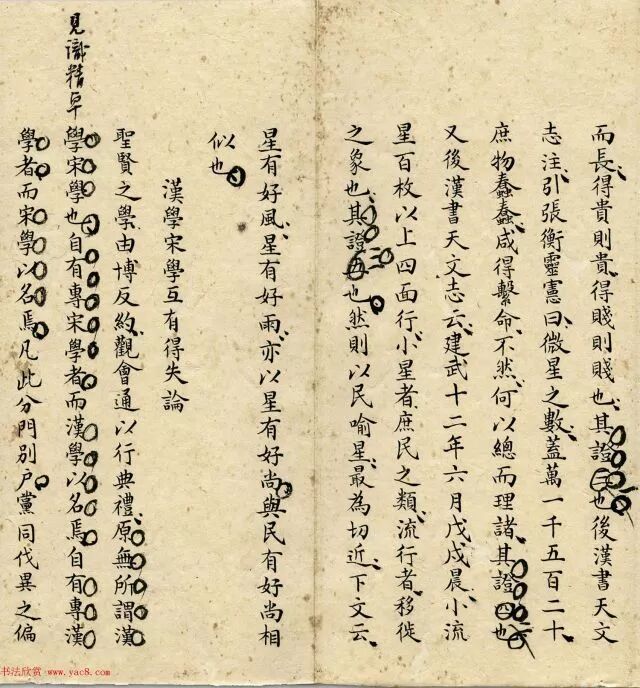 而長得貴則貴得賤則賤也其證三也後漢書天文
志注引張衡靈憲曰微星之數蓋萬一千五百二十
庶物蠢蠢咸得繫命不然何以總而理諸其證四也
又後漢書天文志云建武十二年六月戊戌晨小流
星百枚以上四面行小星者庶民之類流行者移徙
之象也其證五也然則以民喻星最為切近下文云
星有好風星有好雨亦以星有好尚與民有好尚相
似也
漢學宋學互有得失論
聖賢之學由博反約觀會通以行典禮原無所謂漢
學宋學也自有專宋學者而漢學以名焉自有專漢
學者而宋學以名焉凡此分門別戶黨同伐異之偏
見識精卓
书法欣赏 www.yac8.com